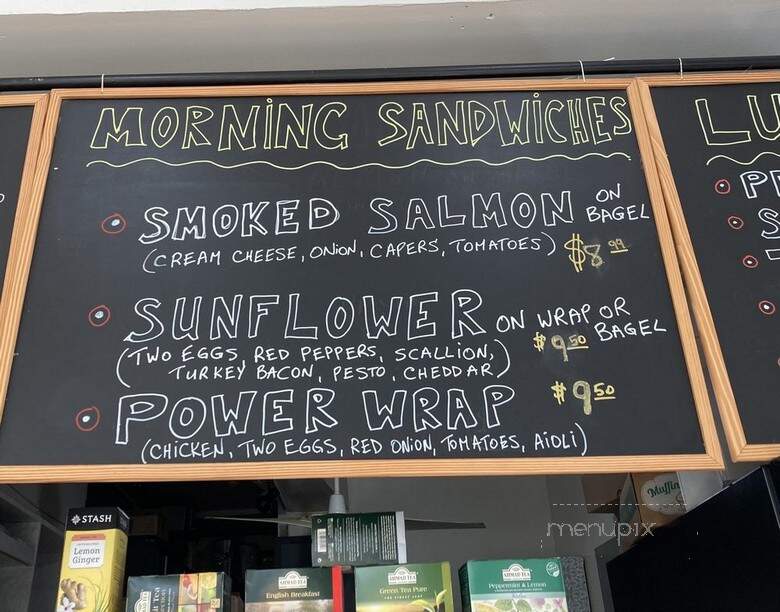 MORNING SANDWICHES
SMOKED SALMON ON BAGEL
(CREAM CHEESE, ONION, CAPERS, TOMATOES) $8.99
SUNFLOWER ON WRAP OR BAGEL
(TWO EGGS, RED PEPPERS, SCALLION, $9.50
TURKEY BACON, PESTO, CHEDDAR)
POWER WRAP $9.50
(CHICKEN, TWO EGGS, RED ONION, TOMATOES, AIOLI)
LU
P
S
Muffin
menupix
STASH
Lemon
Ginger
AHMAD TEA
English Breakfast
AHMAD TEA
Green Tea Pure
AHMAD TEA
Peppermint & Lemon